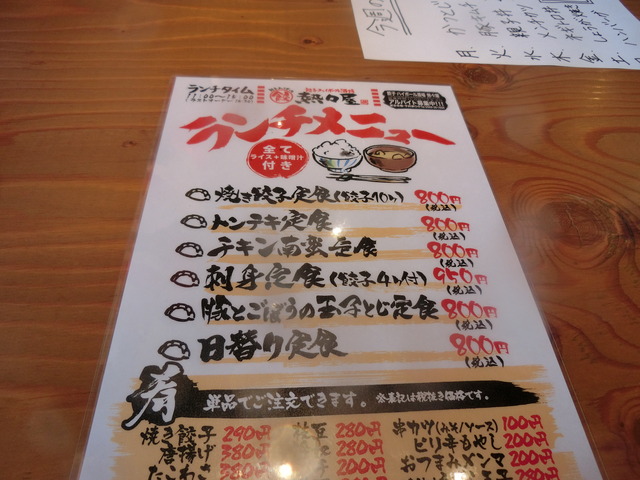 今週の
月 火 水 木 金 土
ランチタイム
餃子ハイボール酒場 熱々屋
アルバイト募集中!!!
熱々屋
ランチメニュー
全て
ライス+味噌汁
付き
焼き餃子定食(餃子10ヶ) 800円
(税込)
トンテキ定食 800円
(税込)
チキン南蛮定食 800円
(税込)
刺身定食(餃子4ヶ付) 950円
(税込)
豚とごぼうの玉子とじ定食 800円
(税込)
日替り定食 800円
(税込)
肴 単品でご注文できます。 ※表記は税抜き価格です。
焼き餃子 290円
唐揚げ 380円
枝豆 280円
280円
200円
串カツ(みそ/ソース) 100円
ピリ辛もやし 200円
おつまみメンマ 200円